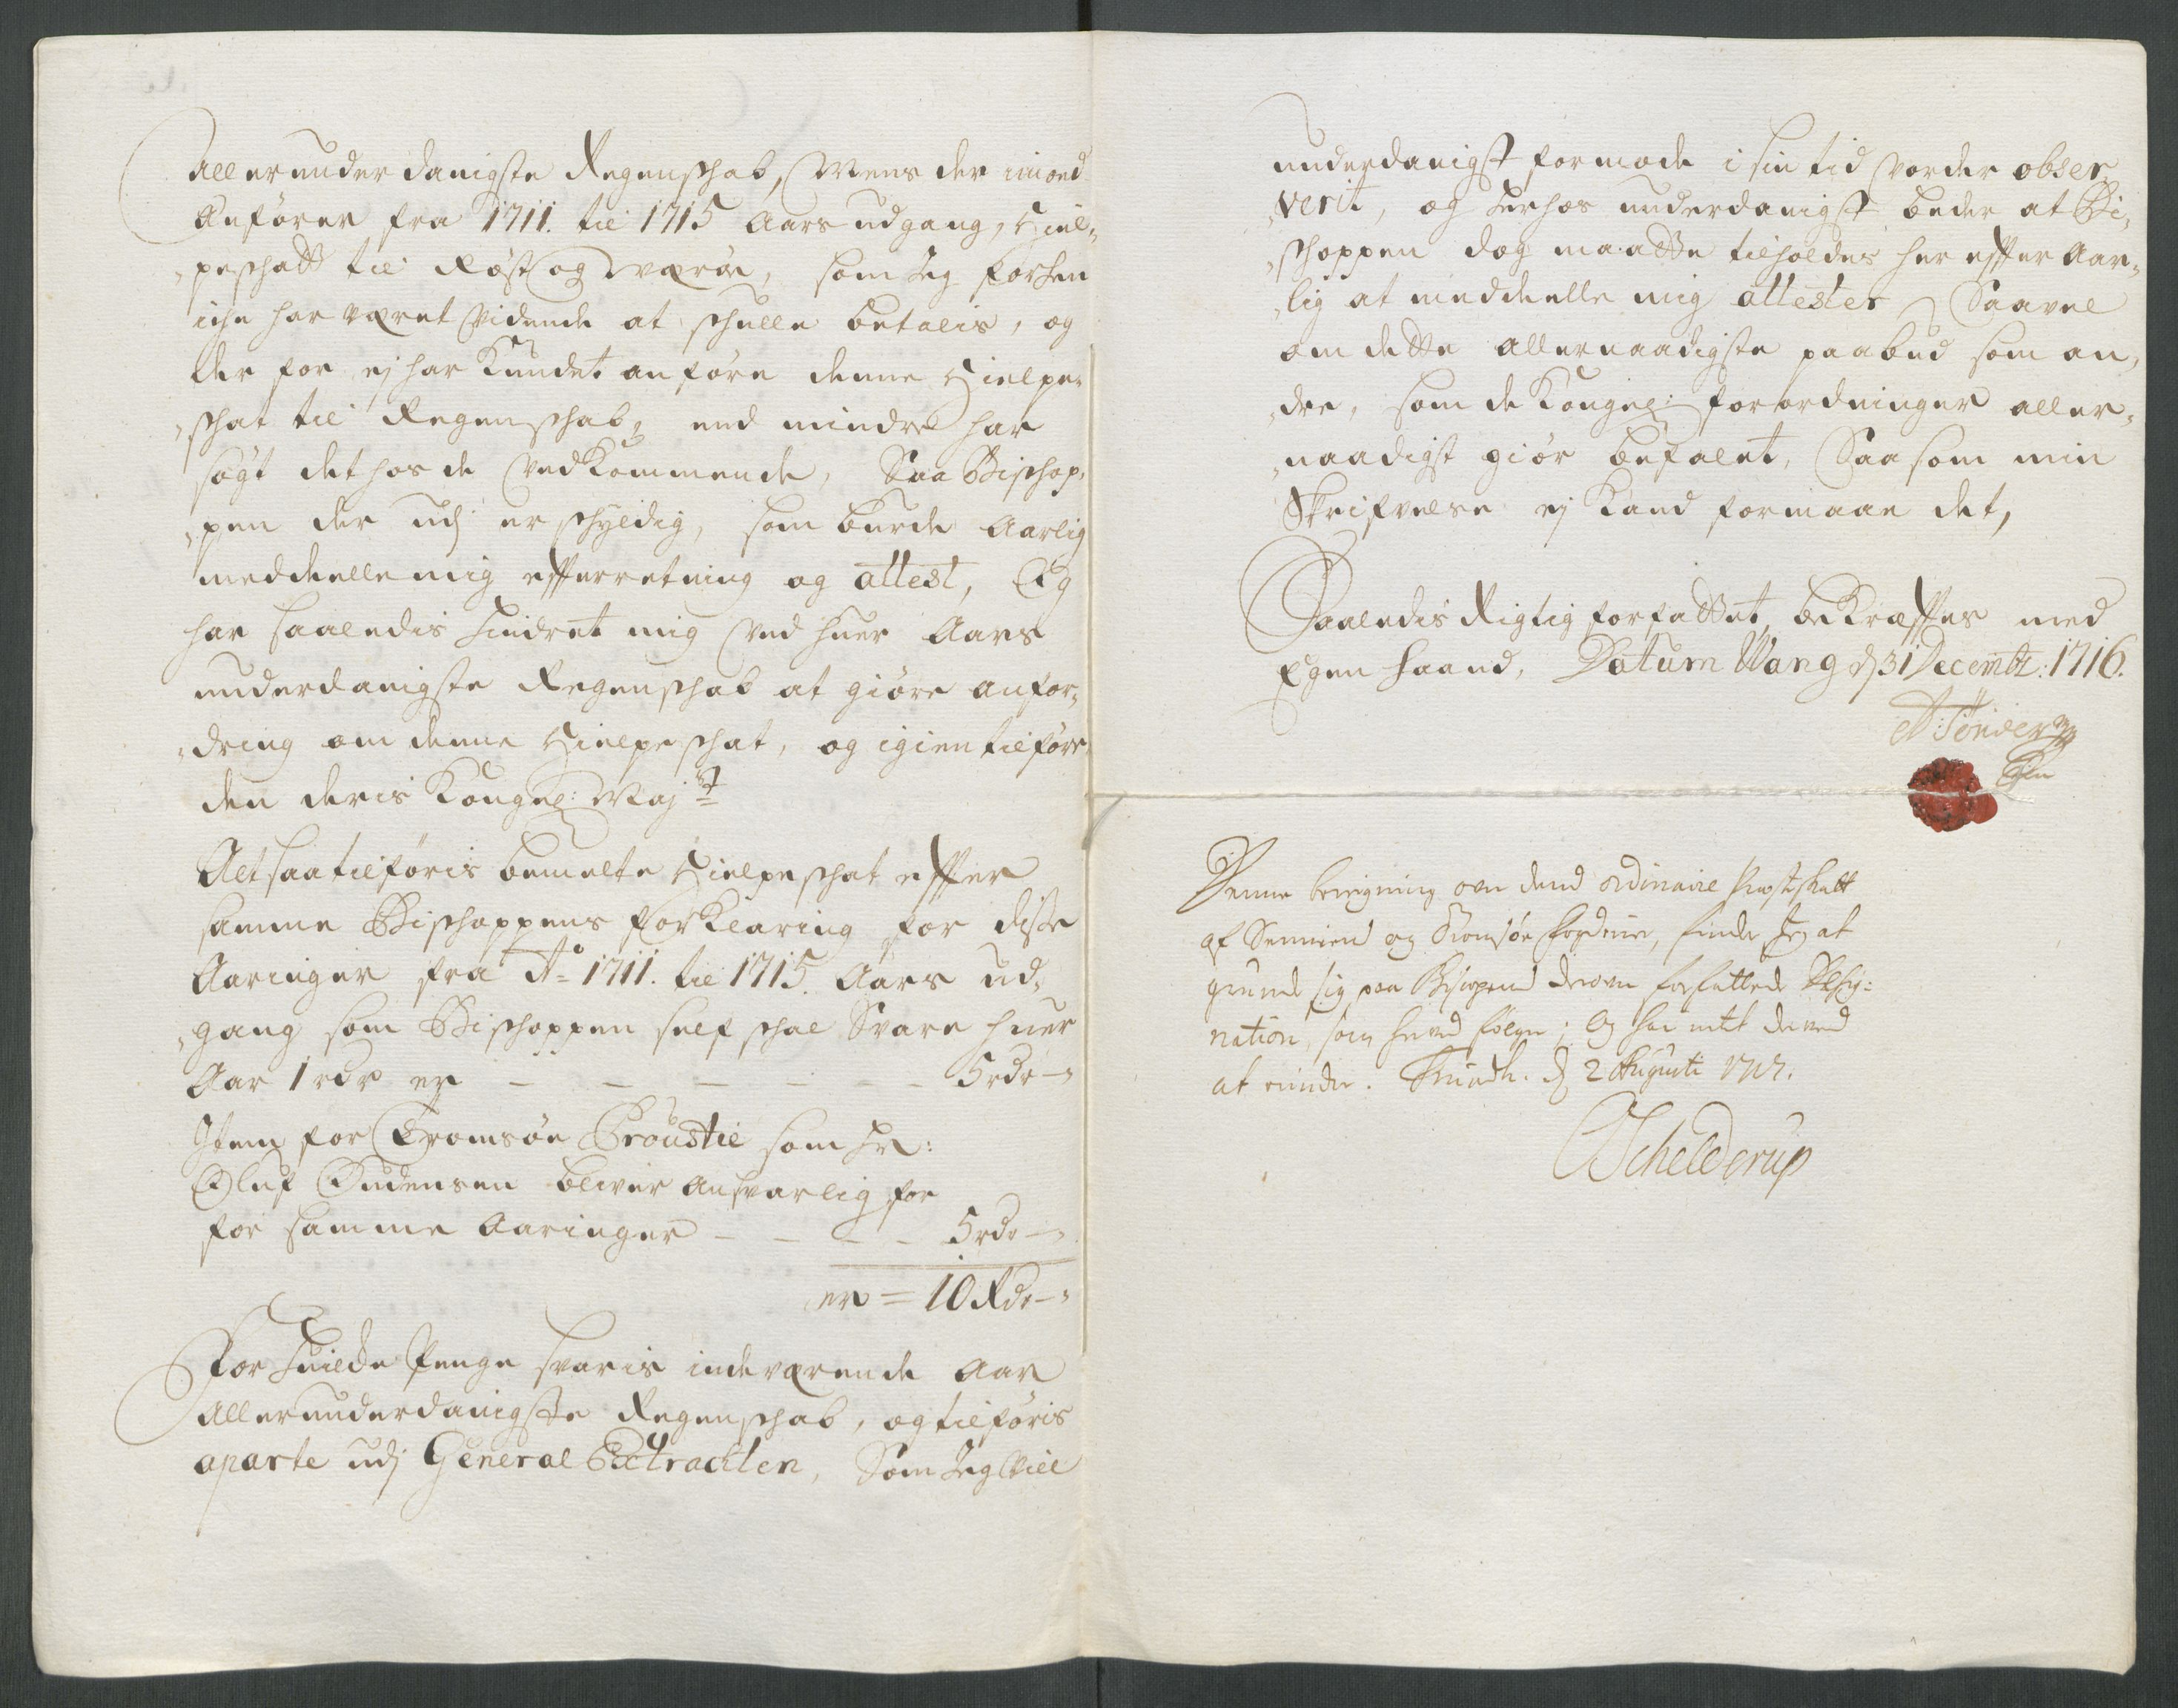 Allerunderdanigste Regenschab, Mens der imod
Anfører fra 1711. til 1715 Aars udgang, Hiel-
peschatt til Røst og Værøe, som Jeg forhen
iche har været vidende at schulle betalis, og
der for ej har Kundet anføre denne Hielpe-
schat til Regenschab, end mindre har
søgt det hos de vedkommende, Saa Bischop-
pen der udj er schyldig, som burde Aarlig
meddeelle mig efterretning og attest, Og
har saaledis hindret mig ved huer Aars
underdanigste Regenschab at giøre anfor-
dring om denne Hielpeschat, og igien tilføre
den deris Kongel: Majt
Alt saa tilføris bemelte Hielpeschat effter
samme Bischoppens forklaring for disse
Aaringer fra Ao 1711. til 1715. Aars ud-
gang som Bischoppen self schal Svare huer
Aar 1 rdr er – – – – – – 5 rdr –
Item for Tromsøe Proustie som Hr:
Oluf Audensen bliver ansvarlig for
for samme Aaringer – – – – 5 rdr –
er = 10 Rdr –
For huilde Penge svaris indeværende Aar
Allerunderdanigste Regenschab, og tilføris
aparte udj General Extracten, Som Jeg vill
underdanigst formode i sin tid vorder obser-
verit, og derhos underdanigst beder at Bi-
schoppen dog maatte tilholdes her effter Aar-
lig at meddeelle mig attester Saavel
om dette allernaadigste paabud som an-
dre, som de Kongel: forordninger aller-
naadigst giør befalet, Saasom min
Skrifvelse ej Kand formaae det,
Saaledis Rigtig forfattet, bekræfftes med
Egen haand, Datum Wang d 31 Decembr: 1716.
A: Tønder
Denne beregning over dend ordinaire Præsteskatt
af Sennien og Tromsøe fogderier, finder Jeg at
grunde sig paa Bispens derover forfattede Desig-
nation, som herved følger; Og har intet derved
at erindre. Trundh. d 2 Augusti 1717.
Schelderup